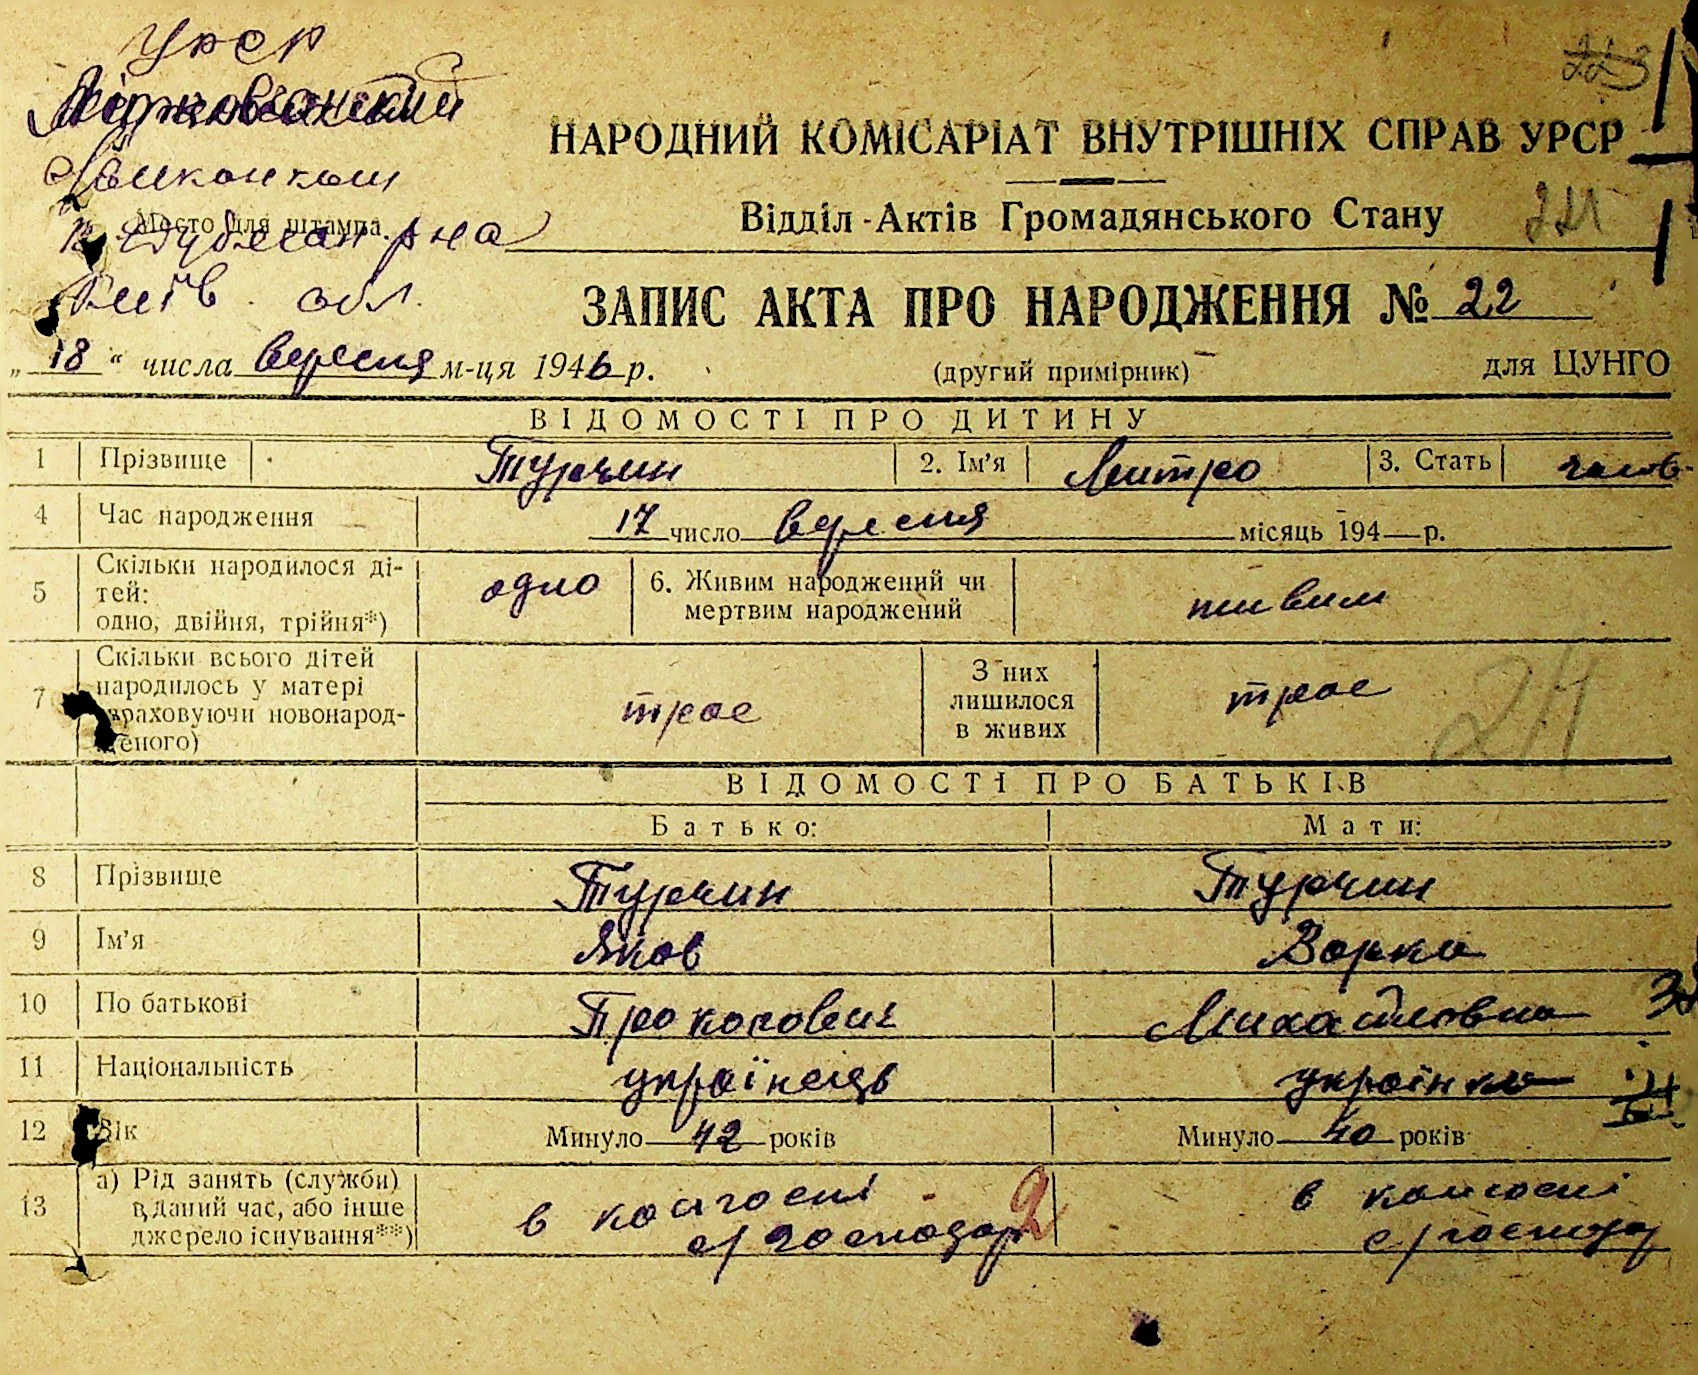 УРСР
Виконком
Место для штампа.
Київ. обл.
223
НАРОДНИЙ КОМІСАРІАТ ВНУТРІШНІХ СПРАВ УРСР
Відділ Актів Громадянського Стану
ЗАПИС АКТА ПРО НАРОДЖЕННЯ № 22
„18“ числа вересня м-ця 1946 р. (другий примірник) для ЦУНГО
ВІДОМОСТІ ПРО ДИТИНУ
1 Прізвище Турчин 2. Ім'я Митро 3. Стать чолов.
4 Час народження 17 число вересня місяць 194— р.
5 Скільки народилося ді-
тей:
одно, двійня, трійня*) одно 6. Живим народжений чи
мертвим народжений живим
7 Скільки всього дітей
народилось у матері
враховуючи новонарод-
женого) троє З них
лишилося
в живих троє
24
ВІДОМОСТІ ПРО БАТЬКІВ
Батько: Мати:
8 Прізвище Турчин Турчин
9 Ім'я Яков Варка
10 По батькові Прокопович Михайловна
11 Національність українець українка
12 Вік Минуло 42 років Минуло 40 років
13 а) Рід занять (служби)
в даний час, або інше
джерело існування**) в колгоспі
с/господар 2 в колгоспі
с/господар